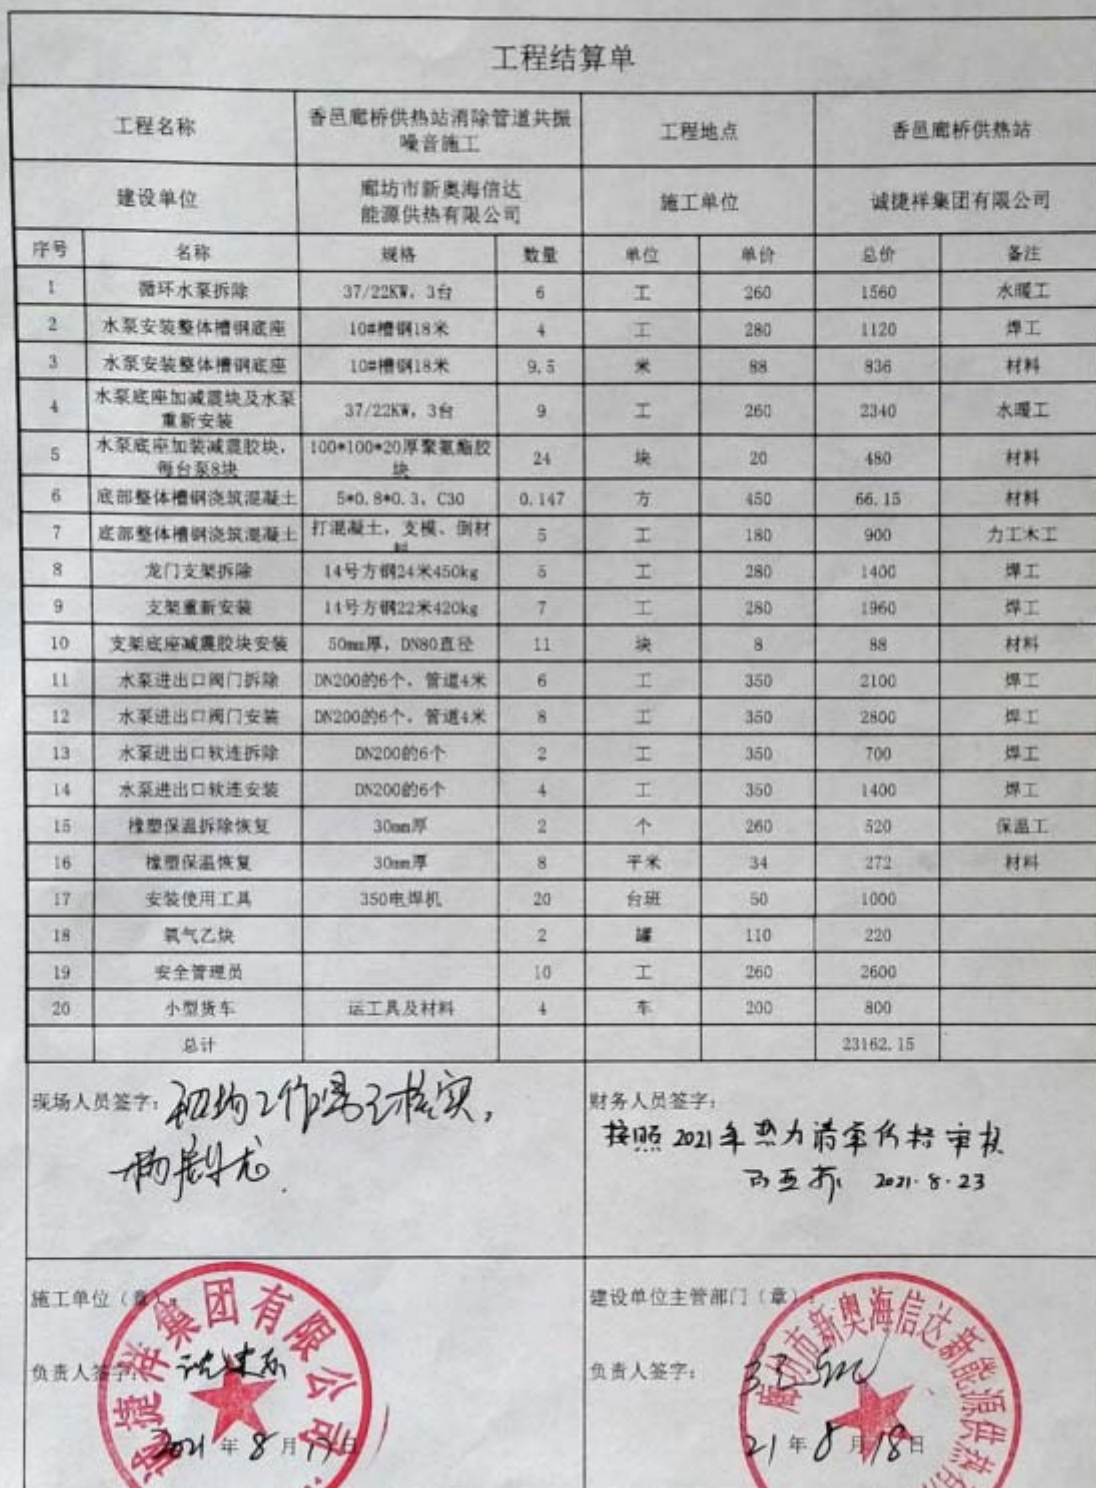 工程结算单
工程名称 香邑廊桥供热站消除管道共振噪音施工 工程地点 香邑廊桥供热站
建设单位 廊坊市新奥海信达能源供热有限公司 施工单位 诚捷祥集团有限公司
序号 名称 规格 数量 单位 单价 总价 备注
1 循环水泵拆除 37/22KW，3台 6 工 260 1560 水暖工
2 水泵安装整体槽钢底座 10#槽钢18米 4 工 280 1120 焊工
3 水泵安装整体槽钢底座 10#槽钢18米 9.5 米 88 836 材料
4 水泵底座加减震块及水泵重新安装 37/22KW，3台 9 工 260 2340 水暖工
5 水泵底座加装减震胶块，每台泵8块 100*100*20厚聚氨酯胶块 24 块 20 480 材料
6 底部整体槽钢浇筑混凝土 5*0.8*0.3，C30 0.147 方 450 66.15 材料
7 底部整体槽钢浇筑混凝土 打混凝土，支模、倒材料 5 工 180 900 力工木工
8 龙门支架拆除 14号方钢24米450kg 5 工 280 1400 焊工
9 支架重新安装 14号方钢22米420kg 7 工 280 1960 焊工
10 支架底座减震胶块安装 50mm厚，DN80直径 11 块 8 88 材料
11 水泵进出口阀门拆除 DN200的6个，管道4米 6 工 350 2100 焊工
12 水泵进出口阀门安装 DN200的6个，管道4米 8 工 350 2800 焊工
13 水泵进出口软连拆除 DN200的6个 2 工 350 700 焊工
14 水泵进出口软连安装 DN200的6个 4 工 350 1400 焊工
15 橡塑保温拆除恢复 30mm厚 2 个 260 520 保温工
16 橡塑保温恢复 30mm厚 8 平米 34 272 材料
17 安装使用工具 350电焊机 20 台班 50 1000
18 氧气乙炔 2 罐 110 220
19 安全管理员 10 工 260 2600
20 小型货车 运工具及材料 4 车 200 800
总计 23162.15
现场人员签字： 现场工作量已核实，
财务人员签字：
按照2021年热力清单价格审核
2021.8.23
施工单位（章）：
负责人签字：
2021年8月17日
诚捷祥集团有限公司
建设单位主管部门（章）：
负责人签字：
21年8月18日
廊坊市新奥海信达新能源供热有